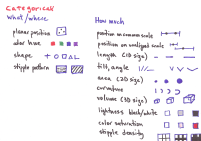 Categorical
what/where
planar position
color hue
shape
stipple pattern
How much
position on common scale
position on unaligned scale
length (1D size)
tilt, angle
area (2D size)
curvature
volume (3D size)
lightness black/white
color saturation
stipple density